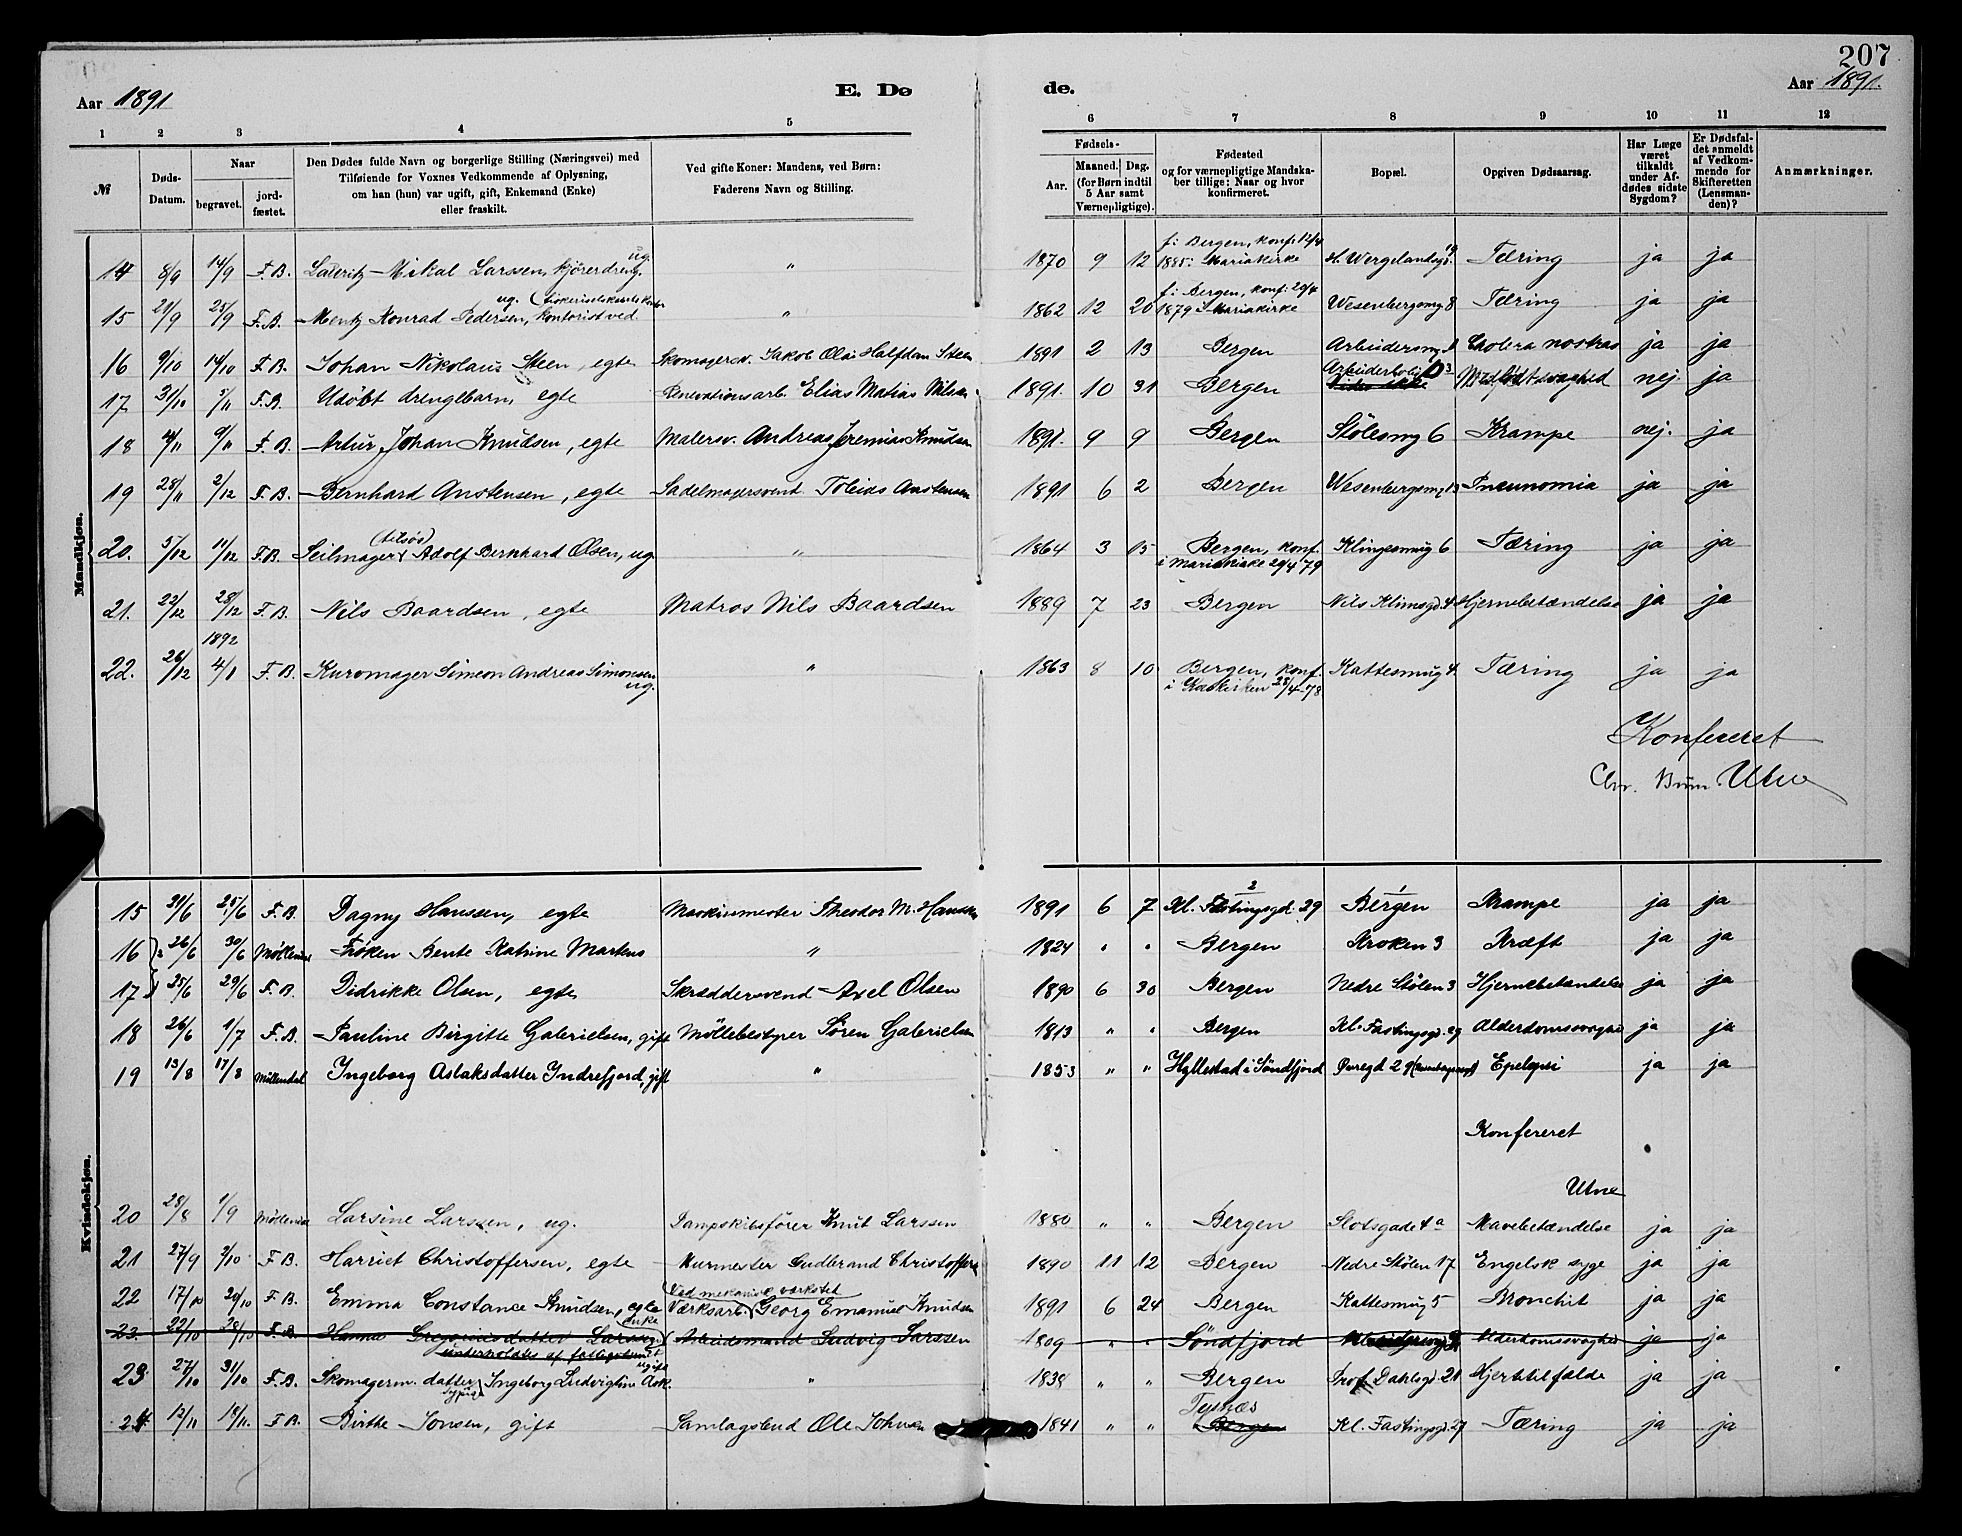 207
Aar 1891
E. Dø
de.
Aar 1891.
1 2 3 4 5
6 7 8 9 10 11 12
№
Døds-Datum.
Naar
begravet.
jord-fæstet.
Den Dødes fulde Navn og borgerlige Stilling (Næringsvei) med
Tilføiende for Voxnes Vedkommende af Oplysning,
om han (hun) var ugift, gift, Enkemand (Enke)
eller fraskilt.
Ved gifte Koner: Mandens, ved Børn:
Faderens Navn og Stilling.
Fødsels-
Aar.
Maaned. Dag.
(for Børn indtil
5 Aar samt
Værnepligtige).
Fødested
og for værnepligtige Mandska-
ber tillige: Naar og hvor
konfirmeret.
Bopæl.
Opgiven Dødsaarsag.
Har Læge
været
tilkaldt
under Af-
dødes sidste
Sygdom?
Er Dødsfal-
det anmeldt
af Vedkom-
mende for
Skifteretten
(Lensman-
den)?
Anmærkninger.
Mandkjøn.
14 8/9 14/9 F.B. Lauritz Mikal Larssen, kjørerdreng, ug. " 1870 9 12 f. i Bergen, konf. 12/4 1885 i Mariakirke H. Wergelandsg. 19 Tæring ja ja
15 21/9 25/9 F.B. Mentz Konrad Pedersen, ug. kontorist ved " 1862 12 20 f. i Bergen, konf. 20/4 1879 i Mariakirke Wesenbergsmg 8 Tæring ja ja
16 9/10 14/10 F.B. Johan Nikolaus Steen, egte Skomagersv. Jakob Olai Halfdan Steen 1891 2 13 Bergen Arbeidersmg. Cholera nostras ja ja
17 31/10 5/11 F.B. Udøbt drengebarn, egte Renovationsarb. Elias Matias Nilsen 1891. 10 31 Bergen Arbeiderbolig D 3 Medfødt svaghed nej ja
18 4/11 9/11 F.B. Artur Johan Knudsen, egte Malersv. Andreas Jeremias Knudsen 1891. 9 9 Bergen Stølesmg 6 Krampe nej. ja
19 28/11 2/12 F.B. Bernhard Anstensen, egte Sadelmagersvend Tobias Anstensen 1891 6 2 Bergen Wesenbergsmg 13 Pneunomia ja ja
20. 5/12 11/12 F.B. Seilmager (tilsøs) Adolf Bernhard Olsen, ug. " 1864 3 15 Bergen, konf. i Mariakirke 20/4 79 Klingesmug 6 Tæring ja ja
21. 22/12 28/12 F.B. Nils Baardsen, egte Matros Nils Baardsen 1889 7 23 Bergen Nils Klimsgd. 4 Hjernebetændelse ja ja
1892
22. 26/12 4/1 F.B. Kuromager Simeon Andreas Simonsen ug. " 1863 8 10 Bergen, konf. i Korskirken 28/4 78 Kattesmug 4. Tæring ja ja
Konfereret
Chr. Brun Utne
Kvindekjøn.
15 21/6 25/6 F.B. Dagny Hanssen, egte Maskinmester Theodor M. Hanssen 1891 6 7 Kl. Fastingsgd. 29 Bergen Krampe ja ja
16 26/6 30/6 Møllendal Frøken Bente Katrine Martens " 1824 " " Bergen Kroken 3 Kræft ja ja
17 25/6 29/6 F.B. Didrikke Olsen, egte Skræddersvend Axel Olsen 1890 6 30 Bergen Nedre Stølen 3 Hjernebetændelse ja ja
18 26/6 1/7 F.B. Pauline Birgitte Gabrielsen, gift Møllebestyrer Søren Gabrielsen 1813 " " Bergen Kl. Fastingsgd. 29 Alderdomssvaghed ja ja
19 13/8 17/8 Møllendal Ingeborg Aslaksdatter Indrefjord, gift " 1853 " " Hyllestad i Søndfjord Øvregd 29 Epelepsi ja ja
Konfereret
Utne
20 28/8 1/9 Møllendal Larsine Larssen, ug. Dampskibsfører Knut Larssen 1880 " " Bergen Slotsgade 4a Mavebetændelse ja ja
21 27/9 2/10 F.B. Harriet Christoffersen, egte Murmester Gudbrand Christoffersen 1890 11 12 Bergen Nedre Stølen 17 Engelsk syge ja ja
22 17/10 20/10 F.B. Emma Constance Knudsen, egte Værksarb. (Ved mekanisk værksted) Georg Emanuel Knudsen 1891 6 24 Bergen Kattesmug 5 Bronchit ja ja
23. 22/10 28/10 F.B. Hanna Gregoriusdatter Larssen, enke understøttes af fattigvæsnet Arbeidsmand Ludvig Larssen 1809 " " Søndfjord Alderdomssvaghed ja ja
23 27/10 31/10 F.B. Skomagerm. datter, sypige Ingeborg Ludvigine Ask. ugift " 1838 " " Bergen Prof. Dahlsgd. 21 Hjertetilfælde ja ja
24 12/11 18/11. F.B. Birthe Jonsen, gift Samlagsbud Ole Johnsen 1841 " " Tysnæs Bergen Kl. Fastingsgd. 27 Tæring ja ja